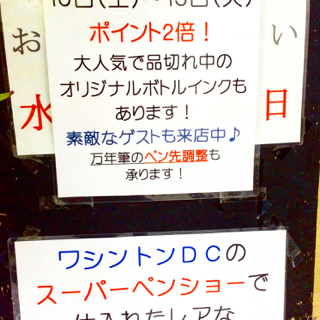 ポイント2倍！
大人気で品切れ中の
オリジナルボトルインクも
あります！
素敵なゲストも来店中♪
万年筆のペン先調整も
承ります！
お
い
水
日
ワシントンＤＣの
スーパーペンショーで
仕入れたレアな